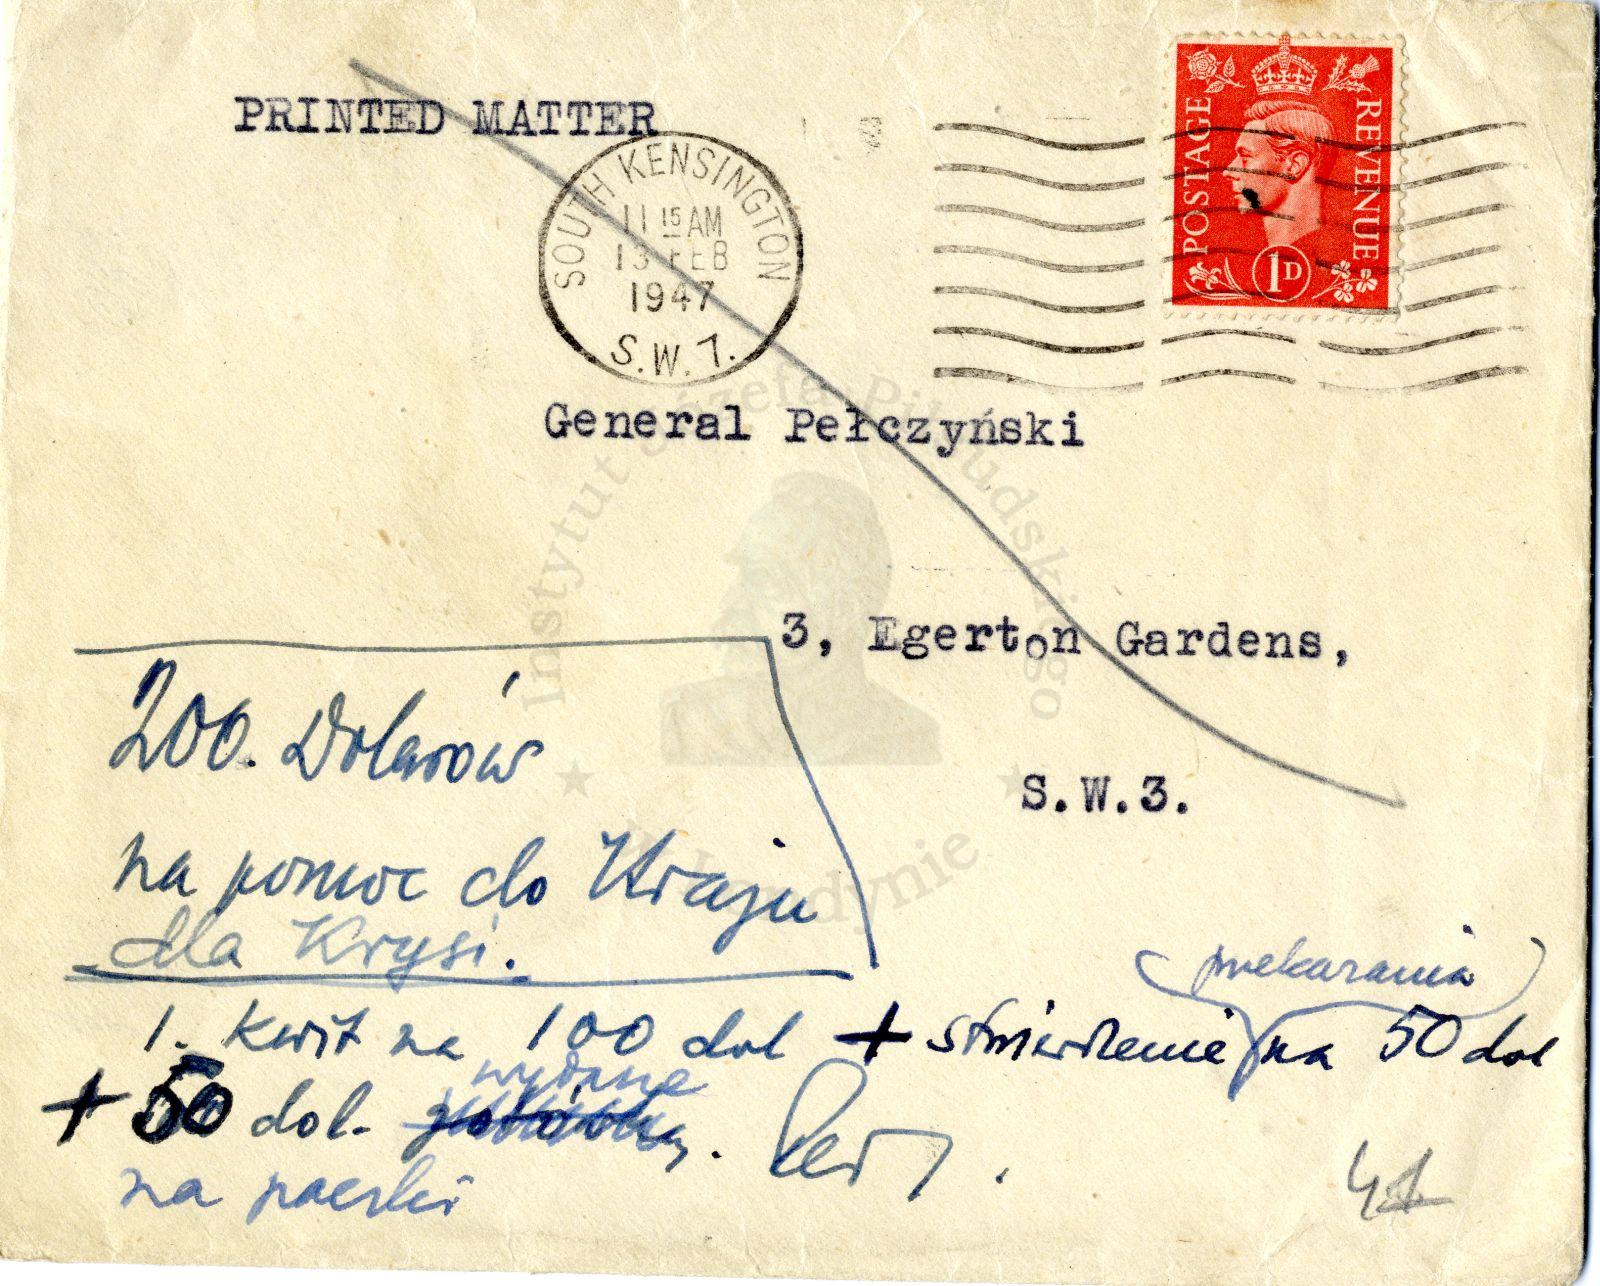 PRINTED MATTER
SOUTH KENSINGTON
11 15 AM
13 FEB
1947
S.W.7.
POSTAGE
REVENUE
1D
General Pełczyński
3, Egerton Gardens,
S.W.3.
200. Dolarów
na pomoc do Kraju
dla Krysi.
przekazania
1. Kwit na 100 dol + stwierdzenie na 50 dol
wydane
+ 50 dol.
na paczki
Instytut Józefa Piłsudskiego
w Londynie